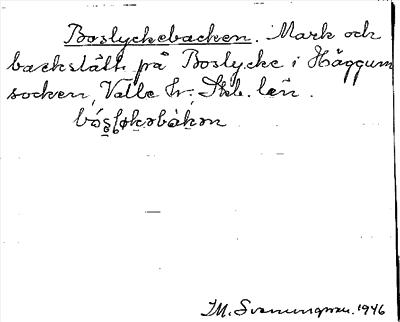 Boslyckebacken. Mark och
backslätt på Boslycke i Häggum
socken, Valle hr., Skb. län.
M. Svanungsson. 1946